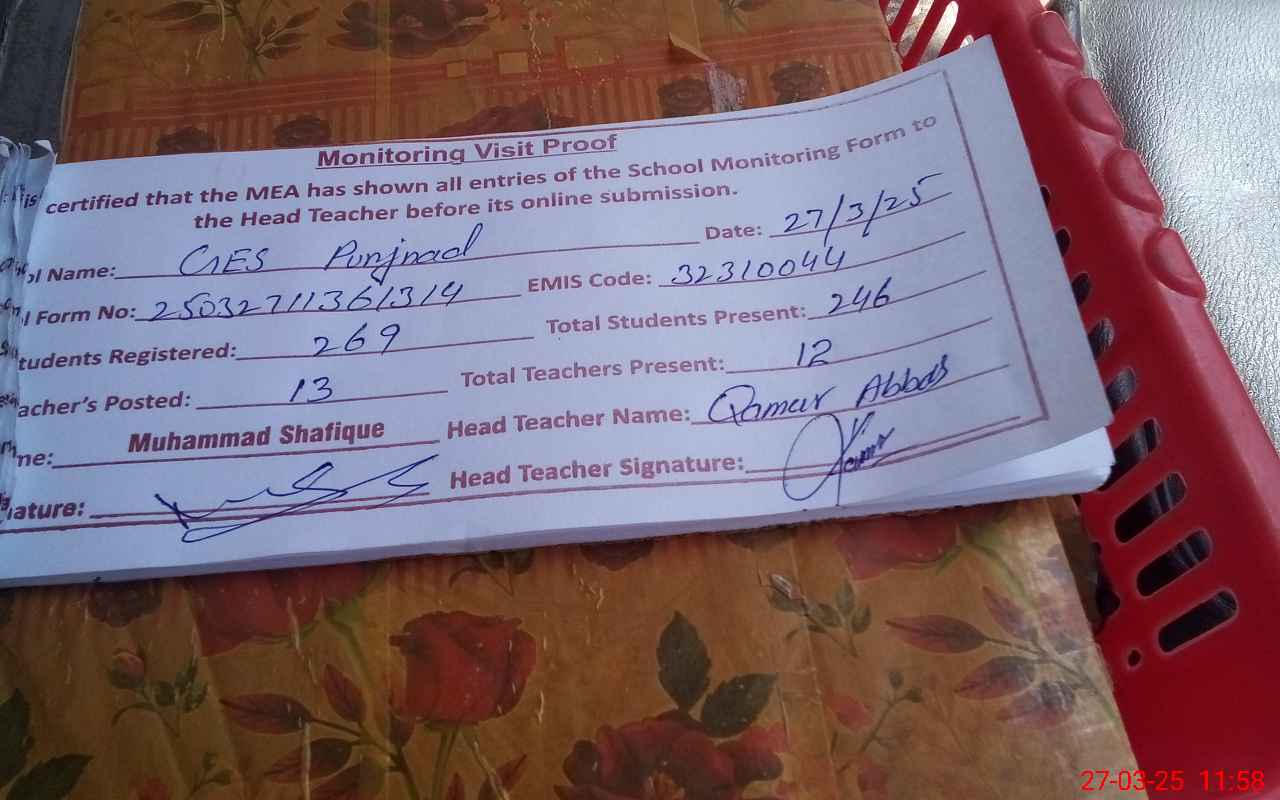 Monitoring Visit Proof
certified that the MEA has shown all entries of the School Monitoring Form to
the Head Teacher before its online submission.
ol Name: GES Punjnad Date: 27/3/25
l Form No: 25032711361314 EMIS Code: 32310044
tudents Registered: 269 Total Students Present: 246
acher's Posted: 13 Total Teachers Present: 12
me: Muhammad Shafique Head Teacher Name: Qamar Abbas
ature: Head Teacher Signature:
27-03-25 11:58